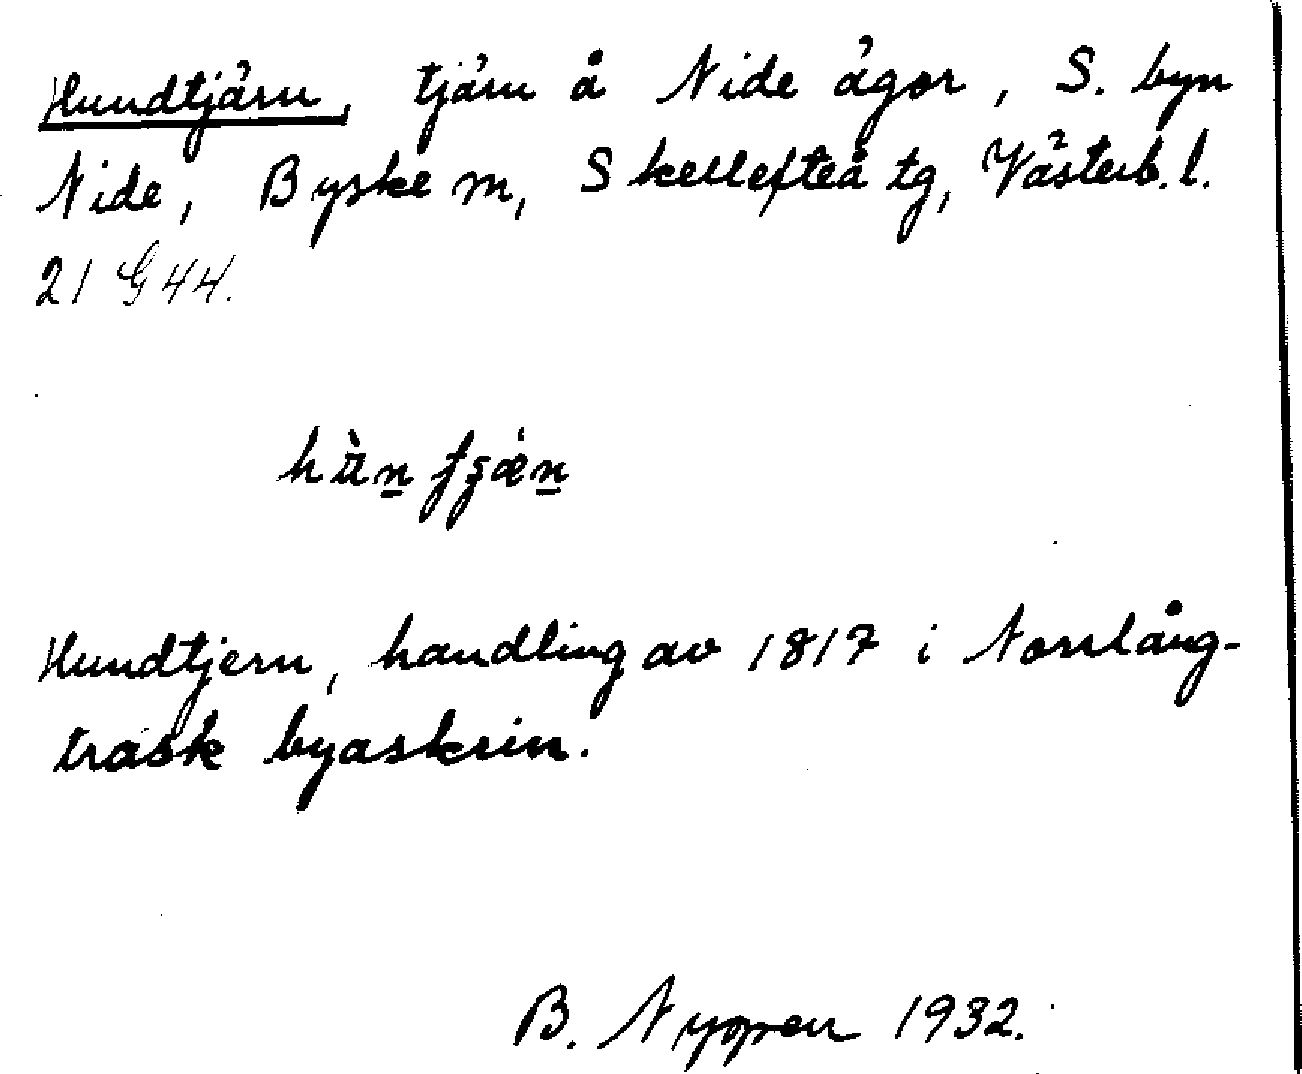 Hundtjärn, tjärn å Nide ägor, S. byn
Nide, Byske sn, Skellefteå tg, Västerb. l.
21 G 44.
Hundtjern, handling av 1817 i Norrlång-
träsk byaskrin.
B. Nyppen 1932.